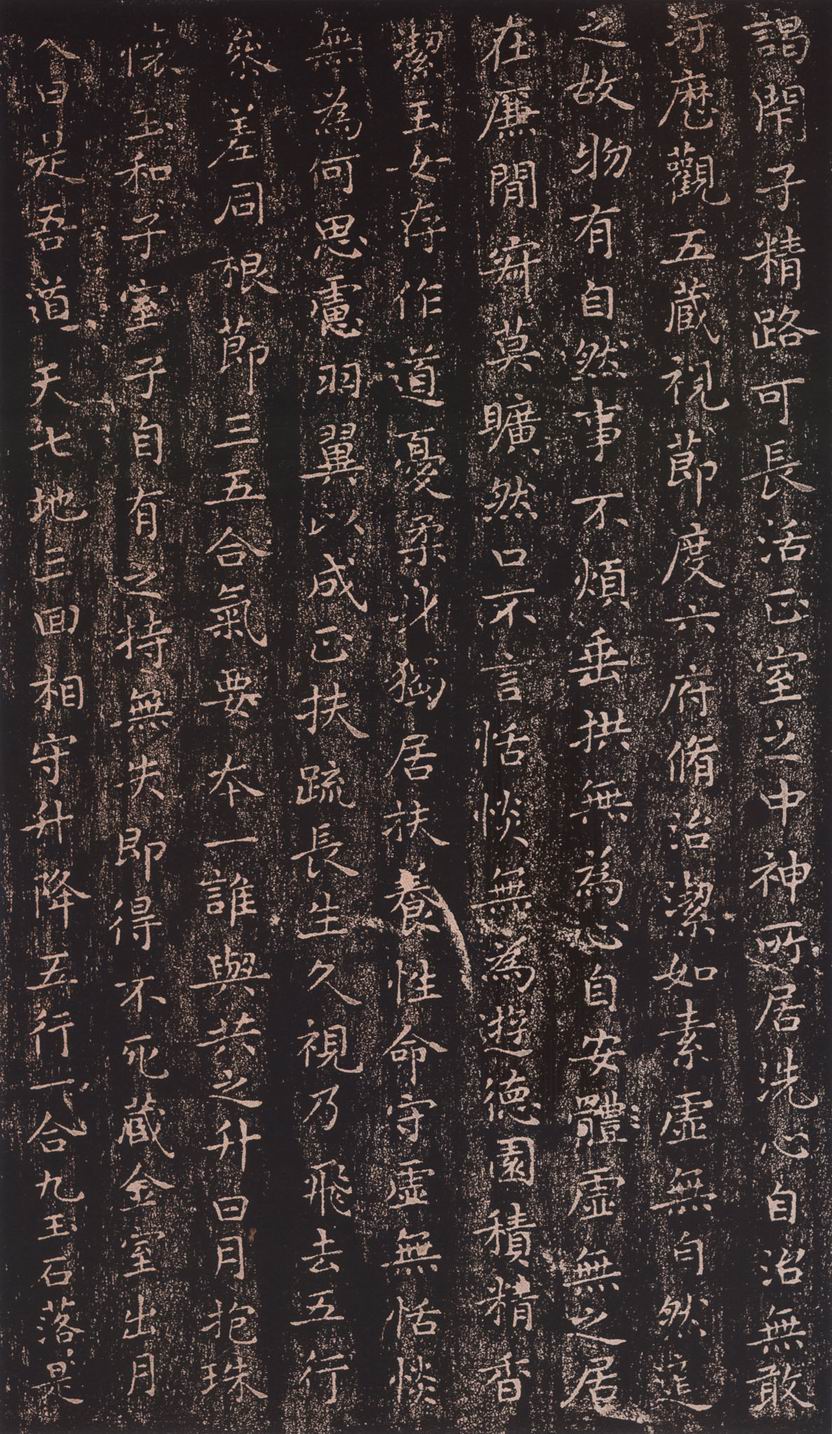 謁閉子精路可長活正室之中神所居洗心自治無敢
汙歷觀五藏視節度六府脩治潔如素虛無自然道
之故物有自然事不煩垂拱無為心自安體虛無之居
在廉閒寂莫曠然口不言恬惔無為遊德園積精香
潔玉女存作道憂柔身獨居扶養性命守虛無恬惔
無為何思慮羽翼以成正扶疏長生久視乃飛去五行
參差同根節三五合氣要本一誰與共之升日月抱珠
懷玉和子室子自有之持無失即得不死藏金室出月
入日是吾道天七地三回相守升降五行一合九玉石落是